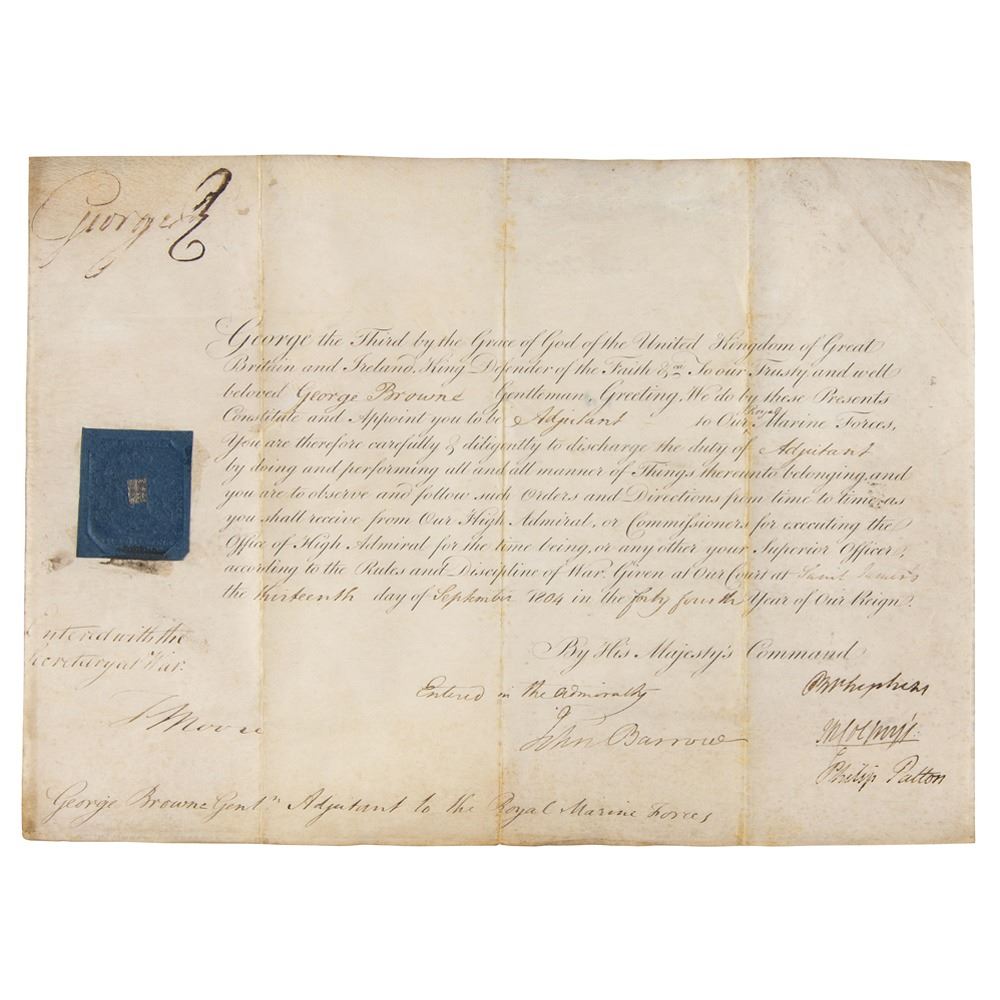 George R
George the Third by the Grace of God of the United Kingdom of Great
Britain and Ireland, King Defender of the Faith &ca To our Trusty and well
beloved George Browne Gentleman, Greeting, We do by these Presents
Constitute and Appoint you to be Adjutant to Our Royal Marine Forces,
You are therefore carefully & diligently to discharge the duty of Adjutant
by doing and performing all and all manner of Things thereunto belonging, and
you are to observe and follow such Orders and Directions from time to time, as
you shall receive from Our High Admiral, or Commissioners for executing the
Office of High Admiral for the time being, or any other your Superior Officer,
according to the Rules and Discipline of War. Given at Our Court at Saint James's
the thirteenth day of September 1804 in the forty fourth Year of Our Reign.
By His Majesty's Command
Entered with the
Secretary at War.
Moore
Entered in the Admiralty
John Barrow
Philip Patton
George Browne Gentn Adjutant to the Royal Marine Forces